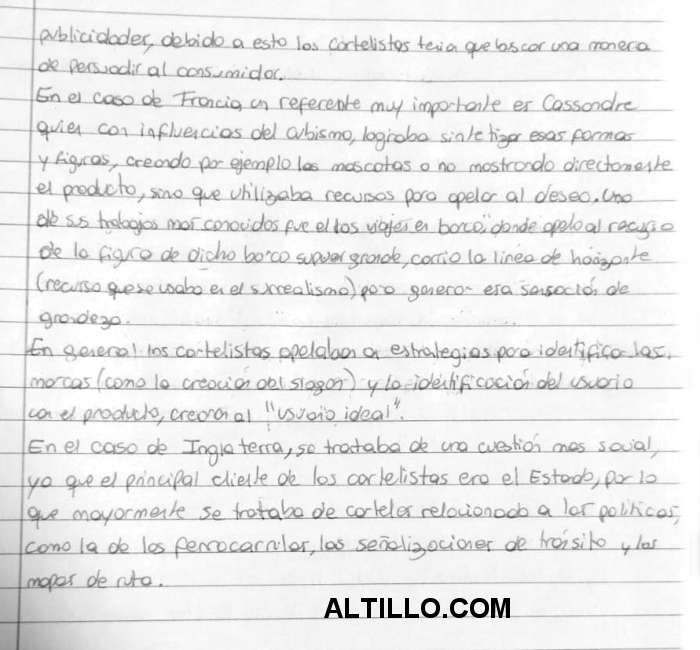 publicidades, debido a esto los cartelistas tenia que buscar una manera
de persuadir al consumidor.
En el caso de Francia, un referente muy importante es Cassandre
quien con influencias del cubismo, lograba sintetizar esas formas
y figuras, creando por ejemplo las mascotas o no mostrando directamente
el producto, sino que utilizaba recursos para apelar al deseo. Uno
de sus trabajos mas conocidos fue el los viajes en barco, donde apelo al recurso
de la figura de dicho barco super grande, corrio la linea de horizonte
(recurso que se usaba en el surrealismo) para generar esa sensación de
grandeza.
En general los cartelistas apelaban a estrategias para identificar las
marcas (como la creación del slogan) y la identificación del usuario
con el producto, creaban al "usuario ideal".
En el caso de Inglaterra, se trataba de una cuestión mas social,
ya que el principal cliente de los cartelistas era el Estado, por lo
que mayormente se trataba de carteles relacionado a las politicas,
como la de los ferrocarriles, las señalizaciones de tránsito y los
mapas de ruta.
ALTILLO.COM